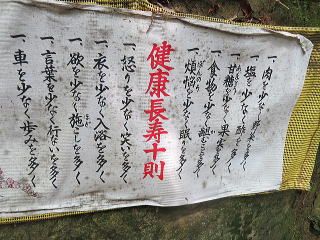 一、肉を少なく 野菜を多く
一、塩を少なく 酢を多く
一、甘糖を少なく 果実を多く
一、食物を少なく 齟むを多く
一、煩悩を少なく 眠りを多く
健康長寿十則
一、怒りを少なく 笑いを多く
一、衣を少なく 入浴を多く
一、欲を少なく 施しを多く
一、言葉を少なく 行ないを多く
一、車を少なく 歩みを多く